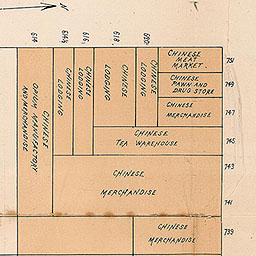 N
614
614½
616
618
620
CHINESE
OPIUM MANUFACTORY
AND MERCHANDISE
CHINESE
LODGING
CHINESE
LODGING
CHINESE
LODGING
CHINESE
LODGING
CHINESE
MEAT
MARKET.
751
CHINESE
PAWN AND
DRUG STORE
749
CHINESE
MERCHANDISE
747
CHINESE
TEA WAREHOUSE
745
743
CHINESE
MERCHANDISE
741
CHINESE
MERCHANDISE
739